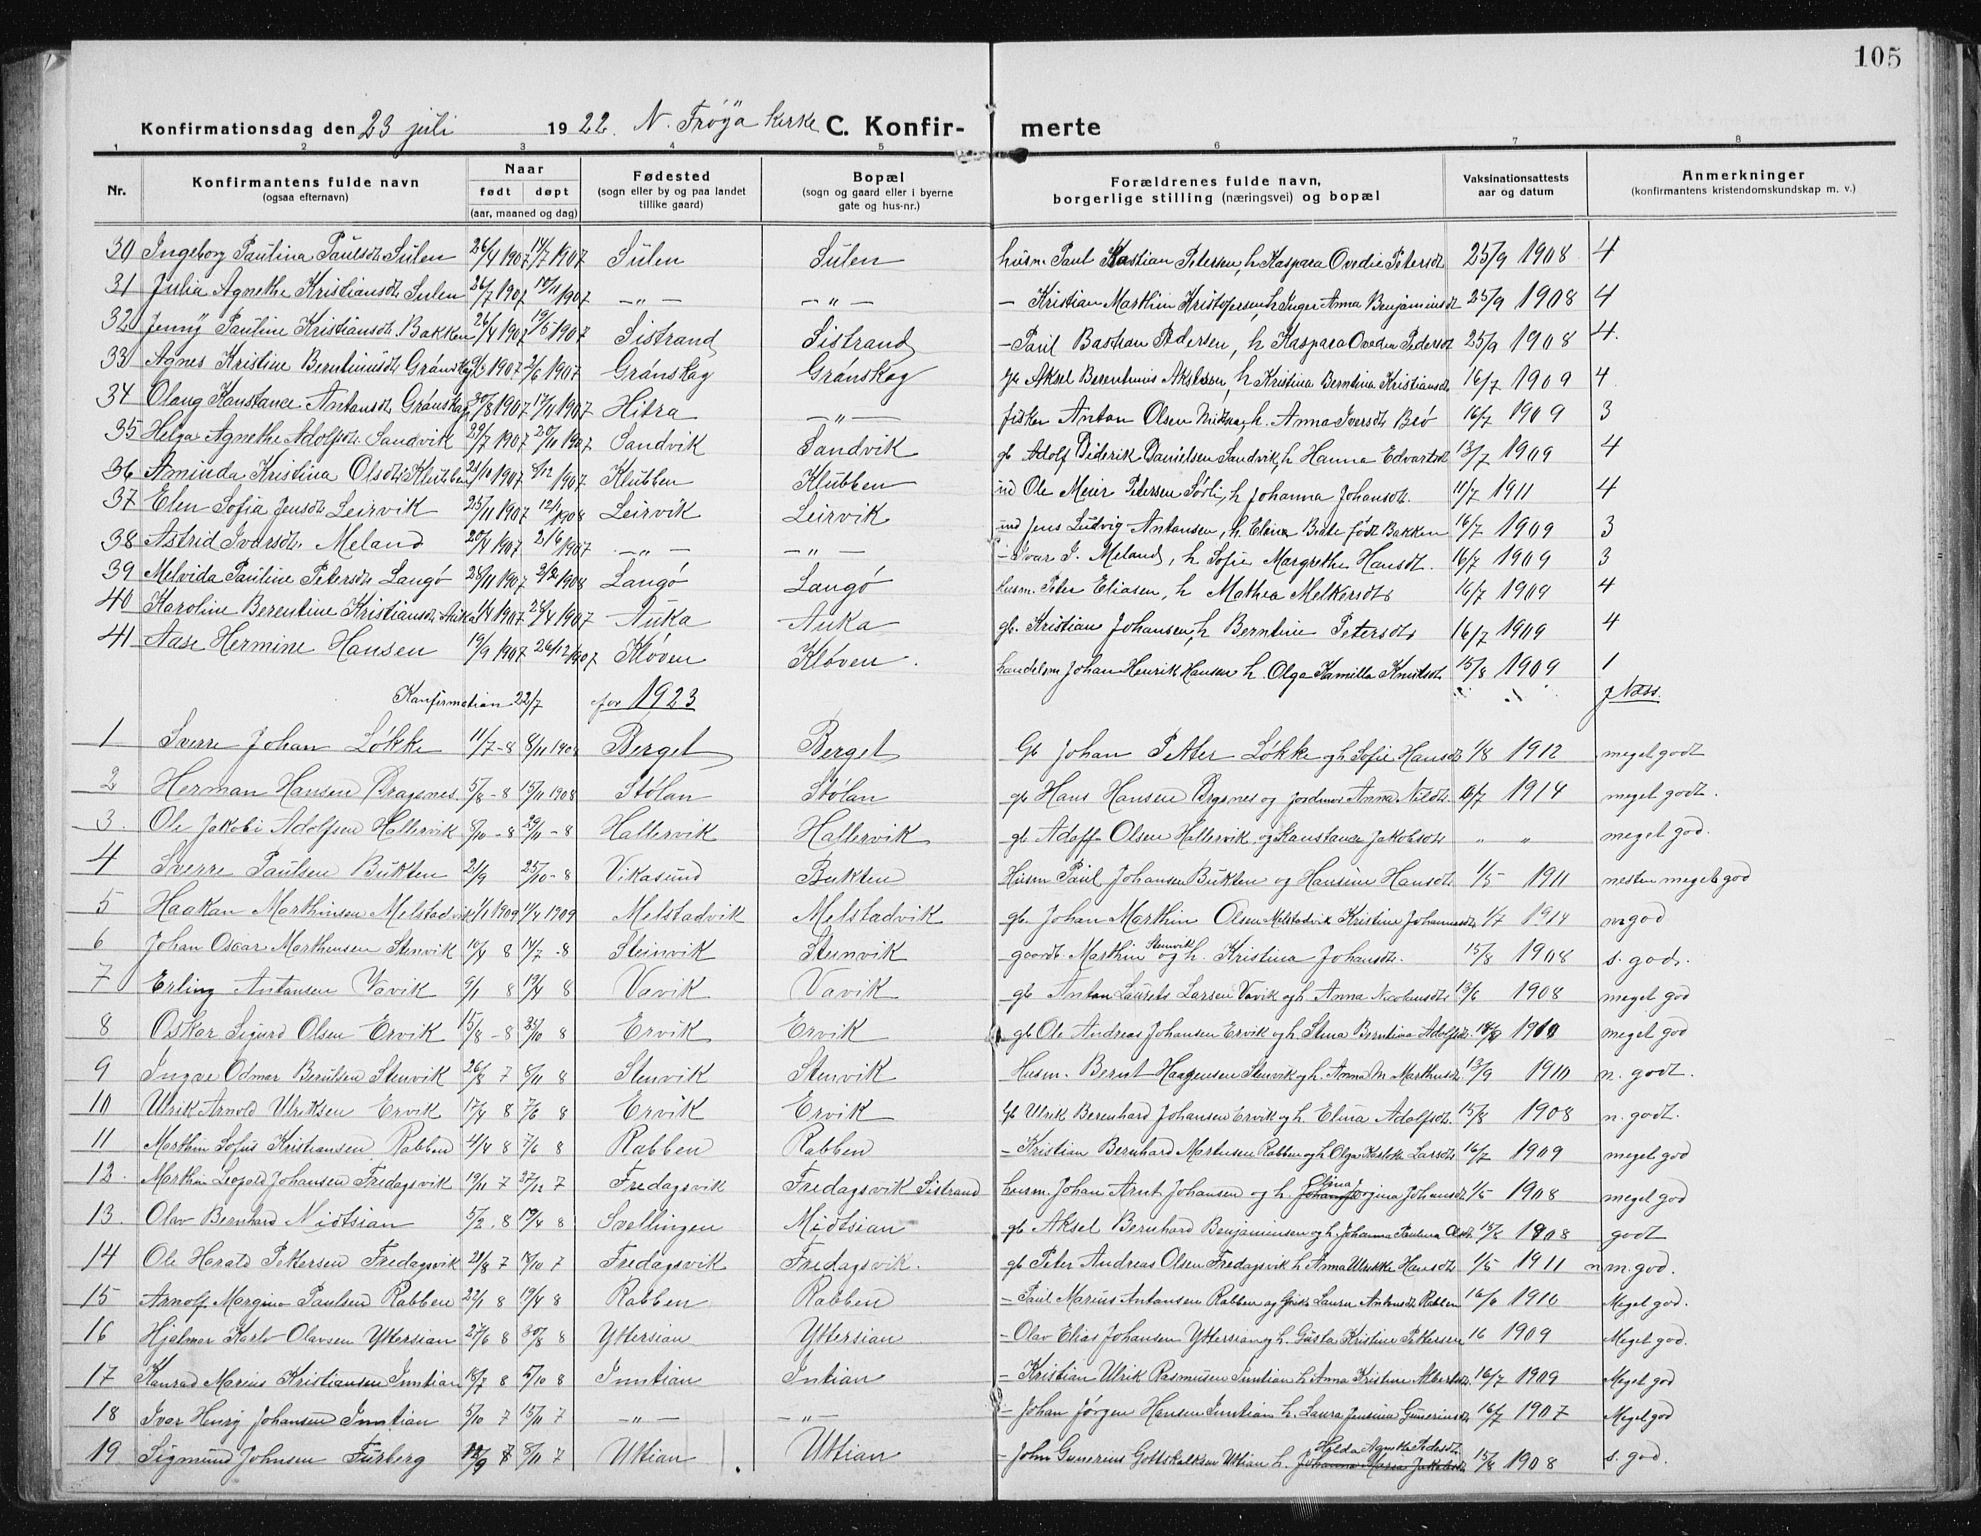 105
Konfirmationsdag den 23 juli 1922. N. Frøya kirke C. Konfirmerte
1 2 3 4 5 6 7 8
Nr. Konfirmantens fulde navn (ogsaa efternavn) Naar født døpt (aar, maaned og dag) Fødested (sogn eller by og paa landet tillike gaard) Bopæl (sogn og gaard eller i byerne gate og hus-nr.) Forældrenes fulde navn, borgerlige stilling (næringsvei) og bopæl Vaksinationsattests aar og datum Anmerkninger (konfirmantens kristendomskundskap m. v.)
30 Ingeborg Paulina Paulsdt. Sulen 26/4 1907 14/7 1907 Sulen Sulen husm. Paul Bastian Petersen, h. Kaspara Ovedie Petersdt 25/9 1908 4
31 Julia Agnethe Kristiansdt Sulen 26/7 1907 17/11 1907 — " — — " — — Kristian Marthin Kristofersen, h. Inger Anna Benjaminsdt 25/9 1908 4
32 Jenny Pauline Kristiansdt. Bakken 26/4 1907 19/5 1907 Sistrand Sistrand — Paul Bastian Pedersen, h Kaspara Ovedia Pedersdt 25/9 1908 4.
33 Agnes Kristine Berntinusdt. Grønskag 9/5 1907 2/6 1907 Grønskag Grønskag gb Aksel Berenthinus Akselsen, h Kristina Berntina Kristiansdt 16/7 1909 4
34 Olaug Konstance Antonsdt. Grønskag 30/8 1907 17/11 1907 Hitra — " — fisker Anton Olsen, h. Anna Iversdt Bø 16/7 1909 3
35 Helga Agnethe Adolfsdt. Sandvik 29/7 1907 20/11 1907 Sandvik Sandvik gb Adolf Diderik Danielsen Sandvik, h Hanna Edvartsdt 13/7 1909 4
36 Aminda Kristina Olsdt. Klubben 21/10 1907 8/12 1907 Klubben Klubben ind Ole Meier Petersen Sørli, h Johanna Johansdt. 11/7 1911 4
37 Elen Sofia Jensdt. Leirvik 25/11 1907 12/1 1908 Leirvik Leirvik ind Jens Ludvig Antonsen, h. Elina Beate født Bakken 16/7 1909 3
38 Astrid Ivarsdt. Meland 20/4 1907 2/6 1907 — " — — " — — Ivar I. Meland, h Sofie Margrethe Hansdt. 16/7 1909 3
39 Melvida Pauline Petersdt Langø 24/11 1907 2/2 1908 Langø Langø husm. Peter Eliasen, h Mathea Melkersdt 16/7 1909 4
40 Karoline Berentine Kristiansdt. Auka 1/4 1907 28/4 1907 Auka Auka gb. Kristian Johansen, h Berntine Petersdt, 16/7 1909 4
41 Aase Hermine Hansen 19/9 1907 26/12 1907 Kløven Kløven. handelsm Johan Henrik Hansen h. Olga Kamilla Knutsdt 15/8 1909 1
Konfirmation 22/7 for 1923 J Næss.
1 Sverre Johan Løkke 11/7 - 8 8/11 1908 Berget Berget Gb Johan Petter Løkke og h Sofie Hansdt 1/8 1912 meget godt
2 Herman Hansen Dragsnes. 5/8 - 8 15/11 1908 Stølan Stølan gb Hans Hansen og jordmor Anna Nilsdt. 16/7 1914 meget godt.
3. Ole Jakobi Adolfsen Hallervik 8/10 - 8 29/11 - 8 Hallervik Hallervik gb Adolf Olsen Hallervik og Konstance Jakobsdt " " meget god.
4 Sverre Paulsen Bukten 21/9 25/10 - 8 Vikasund Bukten Husm Paul Johansen Bukten og Hansine Hansdt 1/5 1911 nesten meget god
5 Haakan Marthinsen Melstadvik 1/1 1909 11/4 1909 Melstadvik Melstadvik gb Johan Marthin Olsen Melstadvik Kristine Johannesdt 1/7 1914 m god
6 Johan Oscar Marthinsen Stenvik 10/4 8 14/7 - 8 Steinvik Steinvik gaardb. Marthin Stenvik og h. Kristina Johansdt. 15/8 1908 s. god.
7 Erling Antonsen Vavik 9/1 8 19/4 8 Vavik Vavik gb Anton Laurits Larsen Vavik og h. Anna 13/6 1908 meget god
8 Oskar Sigurd Olsen Ervik 15/8 - 8 8 Ervik Ervik gb Ole Andreas Johansen Ervik og h. Stina Berntina Adolfsdt. 1910 meget god
9 Ingvar Odmar Berntsen Stenvik 26/8 7 8/11 8 Stenvik Stenvik Husm. Bernt Haagensen Stenvik og h. Anna M Marthinsdt. 13/9 1910 n. godt.
10 Ulrik Arnold Ulriksen Ervik 17/4 8 7/6 8 Ervik Ervik Gb Ulrik Bernhard Johansen Ervik og h. Elina Adolfsdt. 15/8 1908 n. godt.
11 Marthin Sofus Kristiansen Rabben 4/4 8 7/6 8 Rabben Rabben — Kristian Bernhard Martinsen Rabben og h. Olga Larsdt 16/7 1909 meget god
12. Marthin Leopold Johansen Fredagsvik 19/11 7 27/12 7 Fredagsvik Fredagsvik Sistrand husm. Johan Arnt Johansen og h. Elina Jorgina Johansdt 1/5 1908 meget god
13. Olav Bernhard Midtsian 5/2. 8 19/4 8 Svellingen Midtsian gb Aksel Bernhard Benjaminsen og h. Johanna Paulina Olsdt 15/8 1908 godt
14 Ole Harald Pettersen Fredagsvik 21/8 7 7 Fredagsvik Fredagsvik. gb Peter Andreas Olsen Fredagsvik h Anna Ulrikke Hansdt 1/5 1911 n m. god.
15 Arnolf Margino Paulsen Rabben 22/1 8 19/4 8 Rabben Rabben — Paul Marius Antonsen Rabben og Laura Antonsdt Rabben 16/6 1910 Meget god.
16 Hjalmar Karlo Olavsen Yttersian 27/6 8 30/8 8 Yttersian Yttersian — Olav Elias Johansen Yttersian og h. Gusta Kristine Pettersen 16 1909 Meget god.
17 Konrad Marius Kristiansen Inntian 18/7 8 /10 8 Inntian Intian — Kristian Ulrik Rasmusen Inntian h. Anna Kristine Albertsdt. 16/7 1909 Meget god
18 Ivar Henry Johansen Inntian 5/10 7 15/11 7 — " — — " — — Johan Jørgen Hansen Inntian h. Laura Jensina Gunerius dt 16/7 1907 Meget god
19 Sigmund Johnsen Furberg 8/11 7 Uttian Uttian — John Gunerius Gottskalksen Uttian h. Helda Agneta Pedersdt. Johanna Maria Jakobsdt. 15/8 1908 s. god.